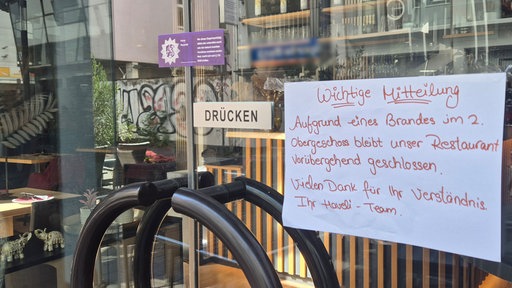 DRÜCKEN
Wichtige Mitteilung
Aufgrund eines Brandes im 2.
Obergeschoss bleibt unser Restaurant
vorübergehend geschlossen.
Vielen Dank für Ihr Verständnis.
Ihr Haveli-Team.